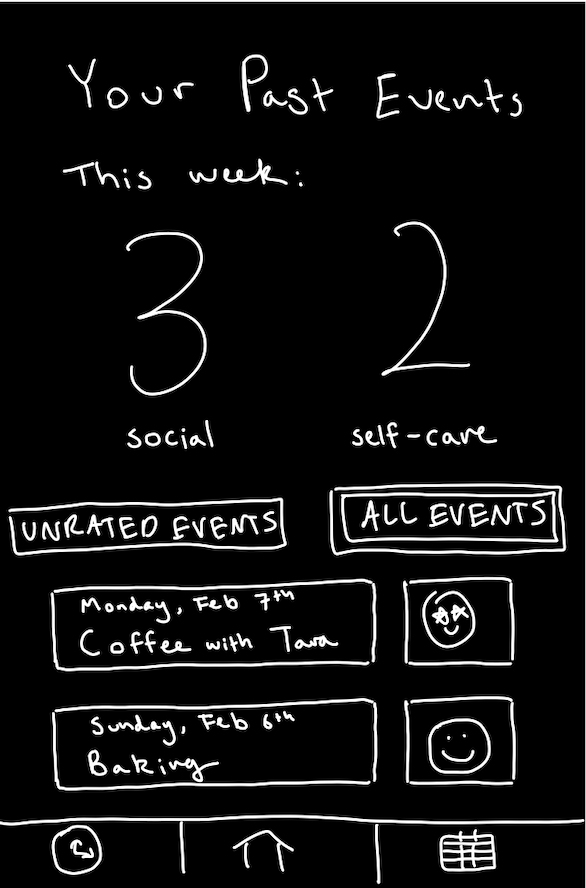 Your Past Events
This week:
3 2
social self-care
UNRATED EVENTS ALL EVENTS
Monday, Feb 7th
Coffee with Tara
Sunday, Feb 6th
Baking